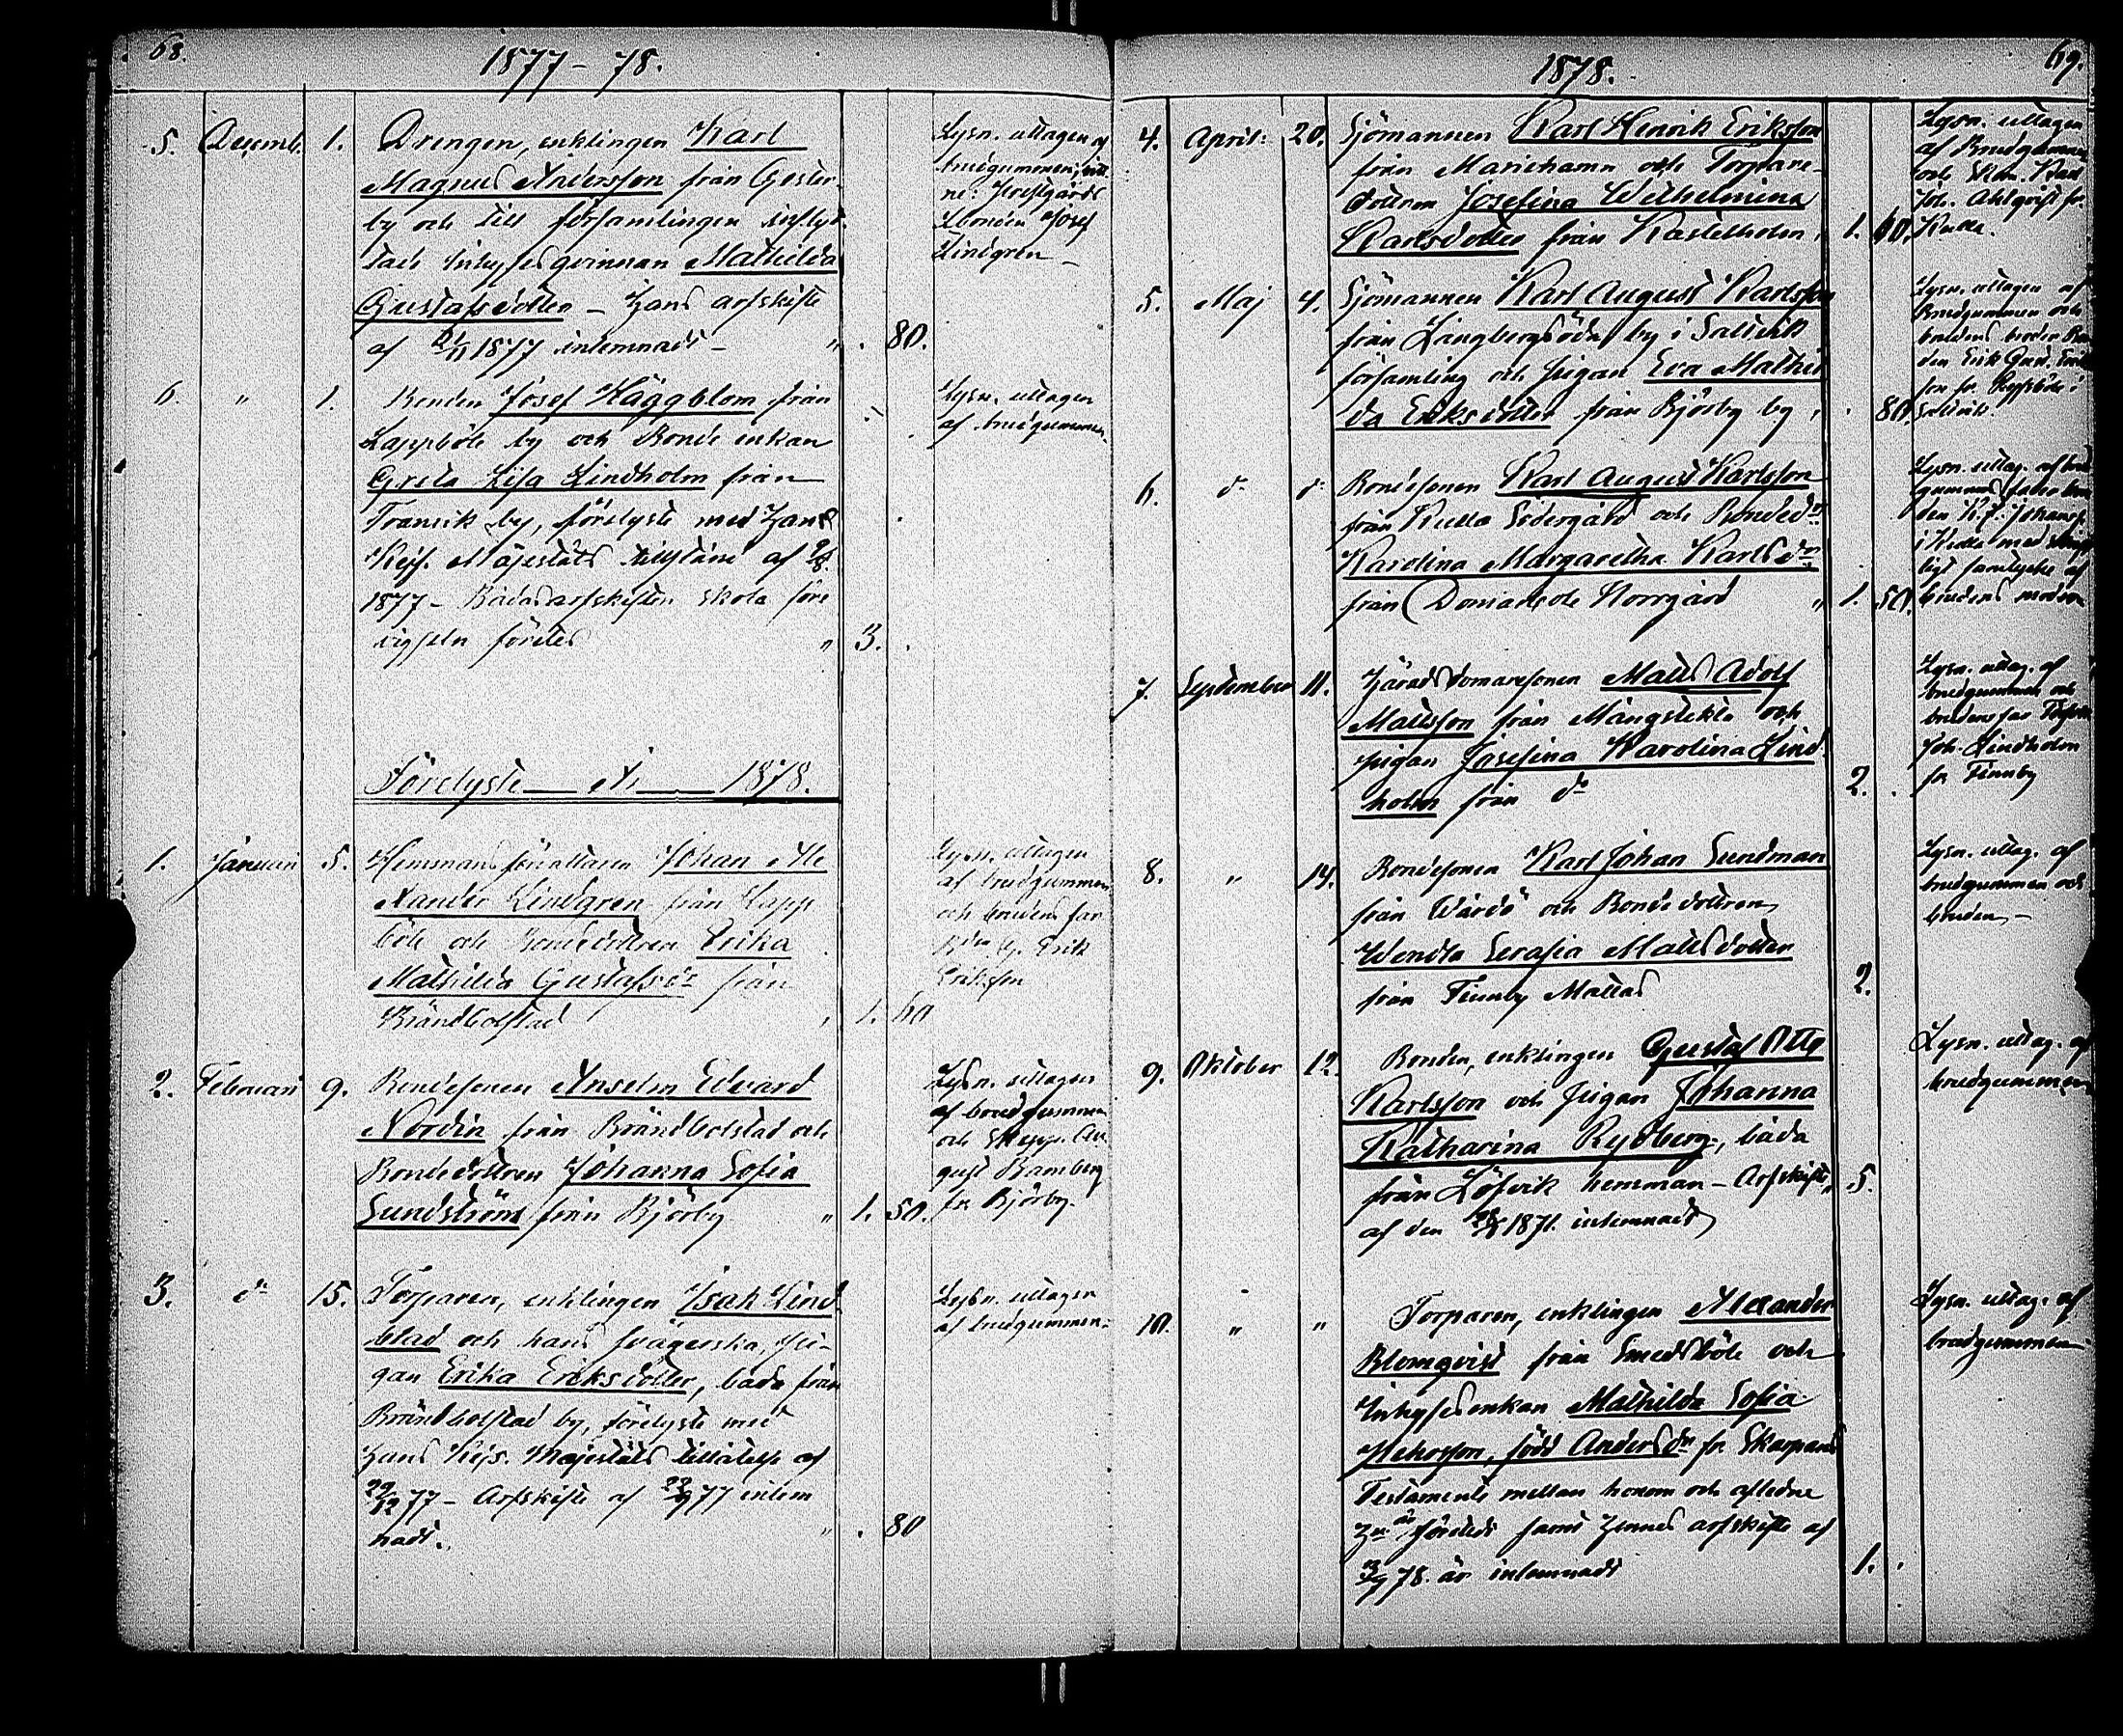 68.
1877-78.
5. Decemb. 1. Drengen, enklingen Karl
Magnus Andersson från Gester-
by och till församlingen inflyt-
tade inhyses qvinnan Mathilda
Gustafsdotter - Hans arfskifte
af 21/11 1877 inlemnadt - " . 80.
Lysn. uttagen af
brudgummen; vitt-
ne: Prestgårds
Bonden Josef
Lindgren -
6. " 1. Bonden Josef Häggblom från
Lappböle by och Bonde enkan
Greta Lisa Lindholm från
Tranvik by, förelyste med Hans
Kejs. Majestäts tillstånd af
1877 - Bådas arfskiften skola före
vigseln företes " 3. .
Lysn. uttagen
af brudgummen.
Förelyste År 1878.
1. Januari 5. Hemmans förvaltaren Johan Ale
xander Lindgren från Lapp
böle och Bondedottren Erika
Mathilda Gustafsdr från
Brändbolstad " 1. 60
Lysn. uttagen
af brudgummen
och brudens far
Erik
Eriksson
2. Februari 9. Bondesonen Anselm Edvard
Nordin från Brändbolstad och
Bondedottren Johanna Sofia
Sundström från Björby " 1. 50.
Lysn. uttagen
af brudgummen
och Skepp. Au
gust Bamberg
fr. Björby.
3. do 15. Torparen, enklingen Isak Lind
blad och hans svägerska, pi-
gan Erika Eriksdotter, båda från
Brändbolstad by, förelyste med
Hans Kejs. Majestäts tillåtelse af
29/12 77 - Arfskifte af 77 inlem
nadt. " . 80
Lysn. uttagen
af brudgummen.
1878.
69.
4. April: 20. Sjömannen Karl Henrik Eriksson
från Mariehamn och Torpare-
dottren Josefina Wilhelmina
Karlsdotter från Kastelholm, 1. 60.
Lysn. uttagen
af Brudgummen
och Karl
Joh. Ahlqvist fr.
Kulla.
5. Maj 4. Sjömannen Karl August Karlsson
från Långbergsöda by i Saltvik
församling och pigan Eva Mathil
da Eriksdotter från Björby by, . 80.
Lysn. uttagen af
Brudgummen och
brudens broder Bon
den Erik Gust. Eriks
son fr. i
Saltvik.
6. do do Bondesonen Karl August Karlsson
från Kulla Södergård och Bondedr
Karolina Margaretha Karlsdr
från Domarböle Norrgård " 1. 50.
Lysn. uttag. af brud
gummens fader bon
den K. J. Johanss.
i Kulla med
ligt samtycke af
brudens moder
7. September 11. Häradsdomaresonen Matts Adolf
Mattsson från Mångstekta och
pigan Josefina Karolina Lind
holm från do 2. .
Lysn. uttag. af
brudgummen och
brudens far
Joh. Lindholm
fr. Finnby
8. " 14. Bondesonen Karl Johan Sundman
från Wårdö och Bondedottren
Wendla Serafia Mattsdotter
från Finnby Mattas 2.
Lysn. uttag. af
brudgummen och
bruden -
9. Oktober 12. Bonden, enklingen Gustaf Otto
Karlsson och pigan Johanna
Katharina Rydberg, båda
från Löfvik hemman - Arfskifte " 5.
af den 1871. inlemnadt
Lysn. uttag. af
brudgummen
10. " " Torparen, enklingen Alexander
Blomqvist från Smedsböle och
Inhyses enkan Mathilda Sofia
född Andersdr fr. Skarpans
Testamente mellan honom och aflidne
Hu är företedt samt Hennes arfskifte af
78. är inlemnadt 1. .
Lysn. uttag. af
brudgummen